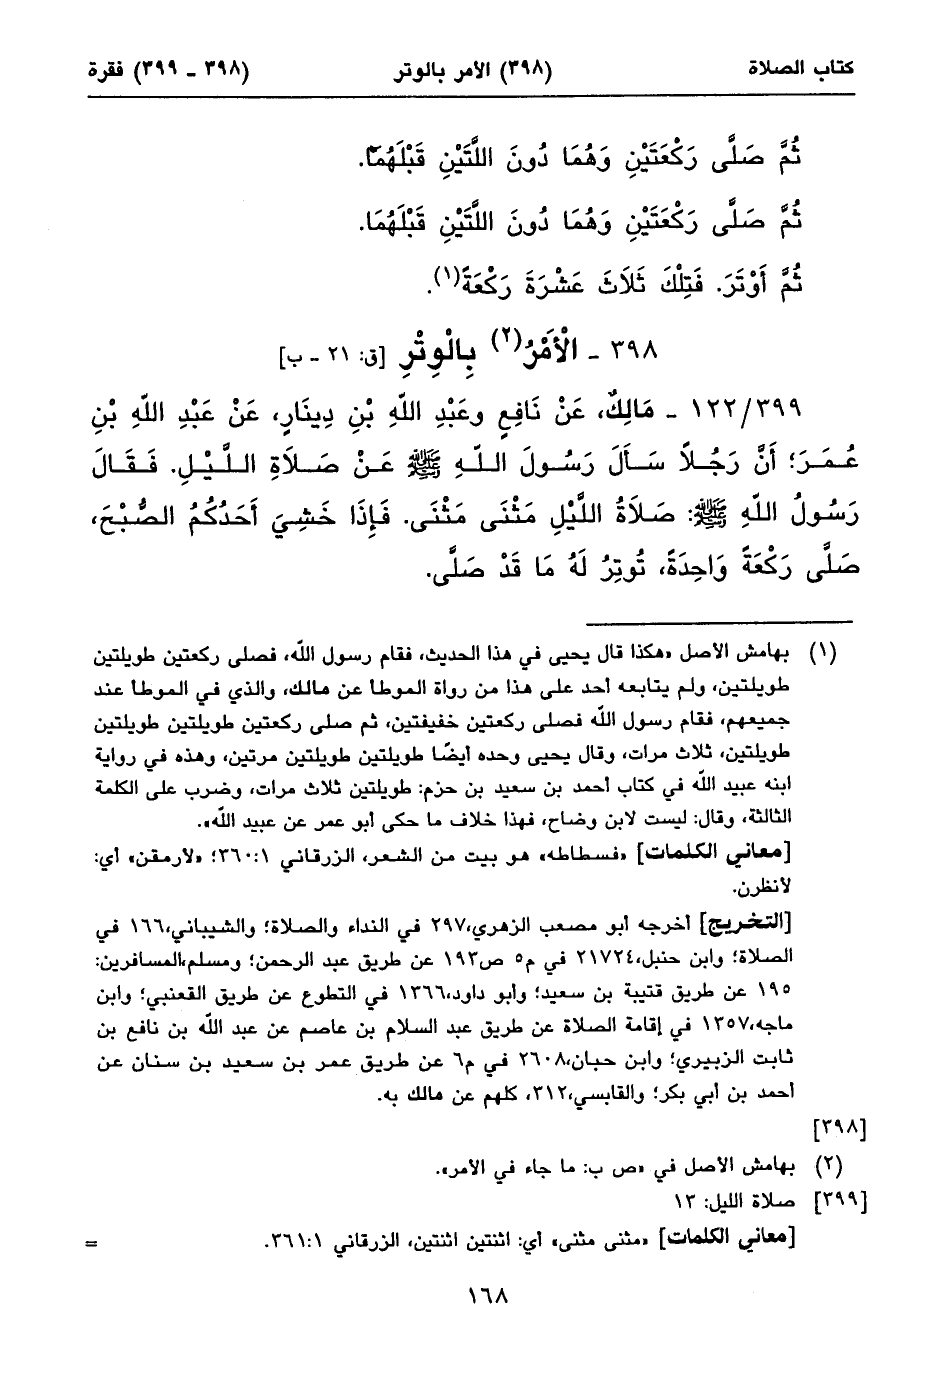 كتاب الصلاة (٣٩٨) الأمر بالوتر (٣٩٨ ـ ٣٩٩) فقرة
ثُمَّ صَلَّى رَكْعَتَيْنِ وَهُمَا دُونَ اللَّتَيْنِ قَبْلَهُمَا.
ثُمَّ صَلَّى رَكْعَتَيْنِ وَهُمَا دُونَ اللَّتَيْنِ قَبْلَهُمَا.
ثُمَّ أَوْتَرَ. فَتِلْكَ ثَلَاثَ عَشْرَةَ رَكْعَةً(١).
٣٩٨ ـ الْأَمْرُ(٢) بِالْوِتْرِ [ق: ٢١ ـ ب]
١٢٢/٣٩٩ ـ مَالِكٌ، عَنْ نَافِعٍ وعَبْدِ اللَّهِ بْنِ دِينَارٍ، عَنْ عَبْدِ اللَّهِ بْنِ
عُمَرَ؛ أَنَّ رَجُلاً سَأَلَ رَسُولَ اللَّهِ ﷺ عَنْ صَلَاةِ اللَّيْلِ. فَقَالَ
رَسُولُ اللَّهِ ﷺ: صَلَاةُ اللَّيْلِ مَثْنَى مَثْنَى. فَإِذَا خَشِيَ أَحَدُكُمُ الصُّبْحَ،
صَلَّى رَكْعَةً وَاحِدَةً، تُوتِرُ لَهُ مَا قَدْ صَلَّى.
(١) بهامش الأصل «هكذا قال يحيى في هذا الحديث، فقام رسول الله، فصلى ركعتين طويلتين
طويلتين، ولم يتابعه أحد على هذا من رواة الموطأ عن مالك، والذي في الموطأ عند
جميعهم، فقام رسول الله فصلى ركعتين خفيفتين، ثم صلى ركعتين طويلتين طويلتين
طويلتين، ثلاث مرات، وقال يحيى وحده أيضًا طويلتين طويلتين مرتين، وهذه في رواية
ابنه عبيد الله في كتاب أحمد بن سعيد بن حزم: طويلتين ثلاث مرات، وضرب على الكلمة
الثالثة، وقال: ليست لابن وضاح، فهذا خلاف ما حكى أبو عمر عن عبيد الله».
[معاني الكلمات] «فسطاطه» هو بيت من الشعر، الزرقاني ٣٦٠:١؛ «لأرمقن» أي:
لأنظرن.
[التخريج] أخرجه أبو مصعب الزهري،٢٩٧ في النداء والصلاة؛ والشيباني،١٦٦ في
الصلاة؛ وابن حنبل،٢١٧٢٤ في م٥ ص١٩٣ عن طريق عبد الرحمن؛ ومسلم،المسافرين:
١٩٥ عن طريق قتيبة بن سعيد؛ وأبو داود،١٣٦٦ في التطوع عن طريق القعنبي؛ وابن
ماجه،١٣٥٧ في إقامة الصلاة عن طريق عبد السلام بن عاصم عن عبد الله بن نافع بن
ثابت الزبيري؛ وابن حبان،٢٦٠٨ في م٦ عن طريق عمر بن سعيد بن سنان عن
أحمد بن أبي بكر؛ والقابسي،٣١٢، كلهم عن مالك به.
[٣٩٨]
(٢) بهامش الأصل في «ص ب: ما جاء في الأمر».
[٣٩٩] صلاة الليل: ١٣
[معاني الكلمات] «مثنى مثنى» أي: اثنتين اثنتين، الزرقاني ٣٦١:١. =
١٦٨